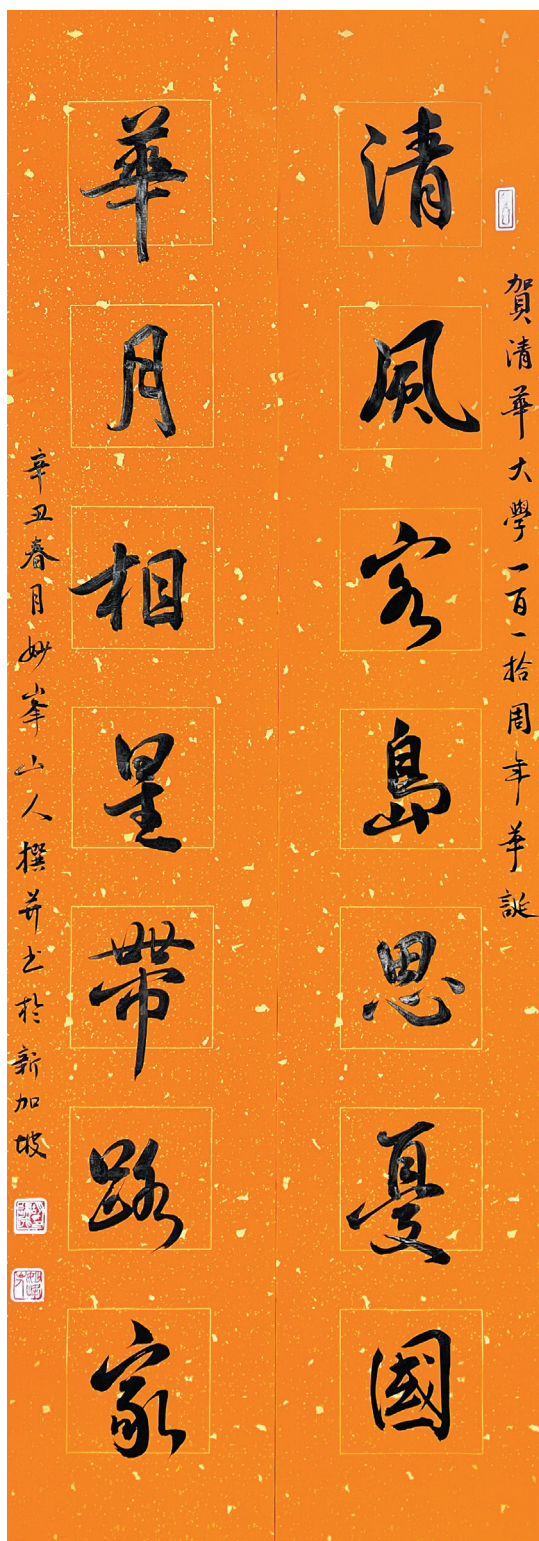 賀清華大學一百一拾周年華誕
清風客島思憂國
華月相星帶路家
辛丑春月妙峯山人撰并书於新加坡